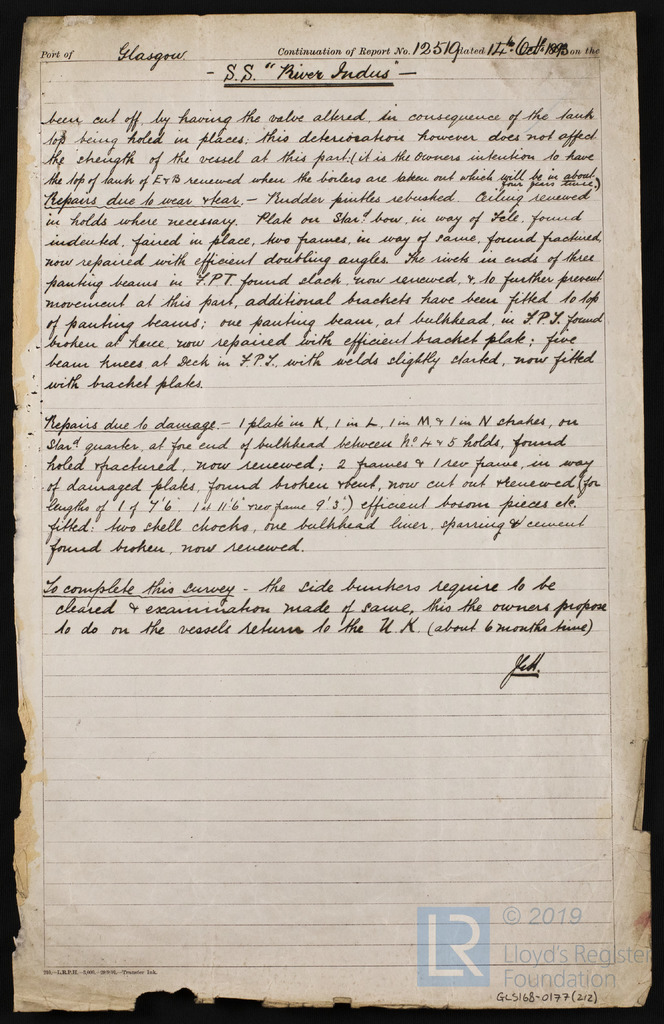 Port of Glasgow. Continuation of Report No. 12519 dated 14th Octr 1893 on the
- S.S. "River Indus" -
been cut off, by having the valve altered, in consequence of the tank
top being holed in places; this deterioration however does not affect
the strength of the vessel at this part. (it is the Owners intention to have
the top of tank of E & B renewed when the boilers are taken out which will be in about
four years time.)
Repairs due to wear & tear. - Rudder pintles rebushed. Ceiling renewed
in holds where necessary. Plate on Stard bow, in way of Fcle, found
indented, faired in place, two frames, in way of same, found fractured,
now repaired with efficient doubling angles. The rivets in ends of three
panting beams in F.P.T. found slack, now renewed, & to further prevent
movement at this part, additional brackets have been fitted to top
of panting beams; one panting beam, at bulkhead, in F.P.T. found
broken at knee, now repaired with efficient bracket plate; five
beam knees at Deck in F.P.T. with welds slightly started, now fitted
with bracket plates.
Repairs due to damage. - 1 plate in K, 1 in L, 1 in M & 1 in N strakes, on
Stard quarter, at fore end of bulkhead between No 4 & 5 holds, found
holed & fractured, now renewed; 2 frames & 1 rev frame, in way
of damaged plates, found broken & bent, now cut out & renewed (for
lengths of 1 of 7'6" 1 of 11'6" & rev frame 9'3".) efficient bosom pieces etc.
fitted: two shell chocks, one bulkhead liner, sparring & cement
found broken, now renewed.
To complete this survey - the side bunkers require to be
cleared & examination made of same, this the owners propose
to do on the vessels return to the U.K. (about 6 months time)
210.-L.R.P.H.-5,000.-20-9-01.-Transfer Ink.
LR © 2019
Lloyd's Register
Foundation
GLS168-0177(212)